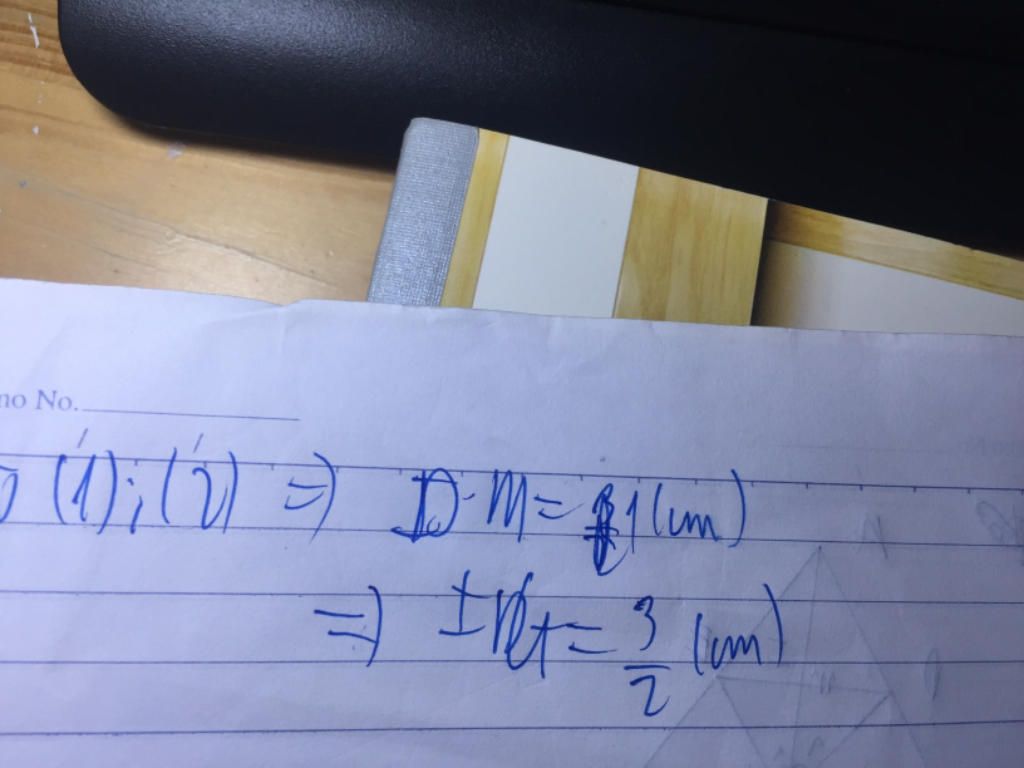 no No.
(1); (2) => D M = 1 (cm)
=> = 3/2 (cm)